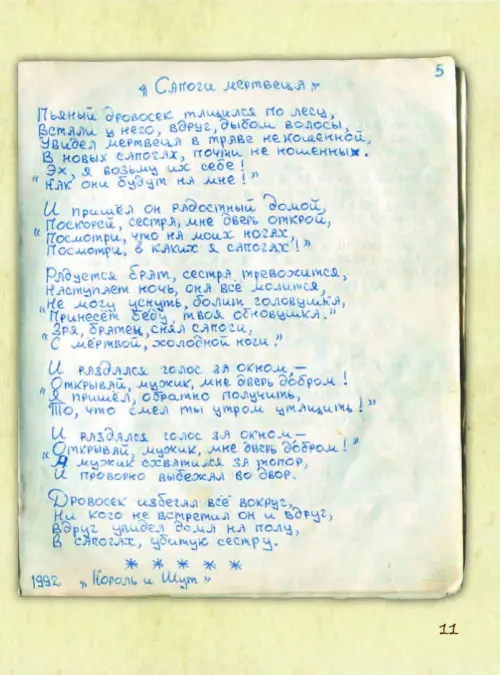 5
„Сапоги мертвеца"
Пьяный дровосек тащился по лесу,
Встали у него, вдруг, дыбом волосы,
Увидел мертвеца в траве некошенной,
В новых сапогах, почти не ношенных.
Эх, я возьму их себе!
"Как они будут на мне!"
И пришёл он радостный домой,
"Поскорей, сестра, мне дверь открой,
Посмотри, что на моих ногах,
Посмотри, в каких я сапогах!"
Радуется брат, сестра тревожится,
Наступает ночь, она всё молится,
"Не могу уснуть, болит головушка,
"Принесёт беду твоя обновушка."
"Зря, братец, снял сапоги,
"С мёртвой, холодной ноги."
И раздался голос за окном,—
"Открывай, мужик, мне дверь добром!
Я пришёл, обратно получить,
То, что смел ты утром утащить!"
И раздался голос за окном—
"Открывай, мужик, мне дверь добром!"
А мужик схватился за топор,
И проворно выбежал во двор.
Дровосек избегал всё вокруг,
Ни кого не встретил он и вдруг,
Вдруг увидел дома на полу,
В сапогах, убитую сестру.
* * * * *
1992 „Король и Шут"
11